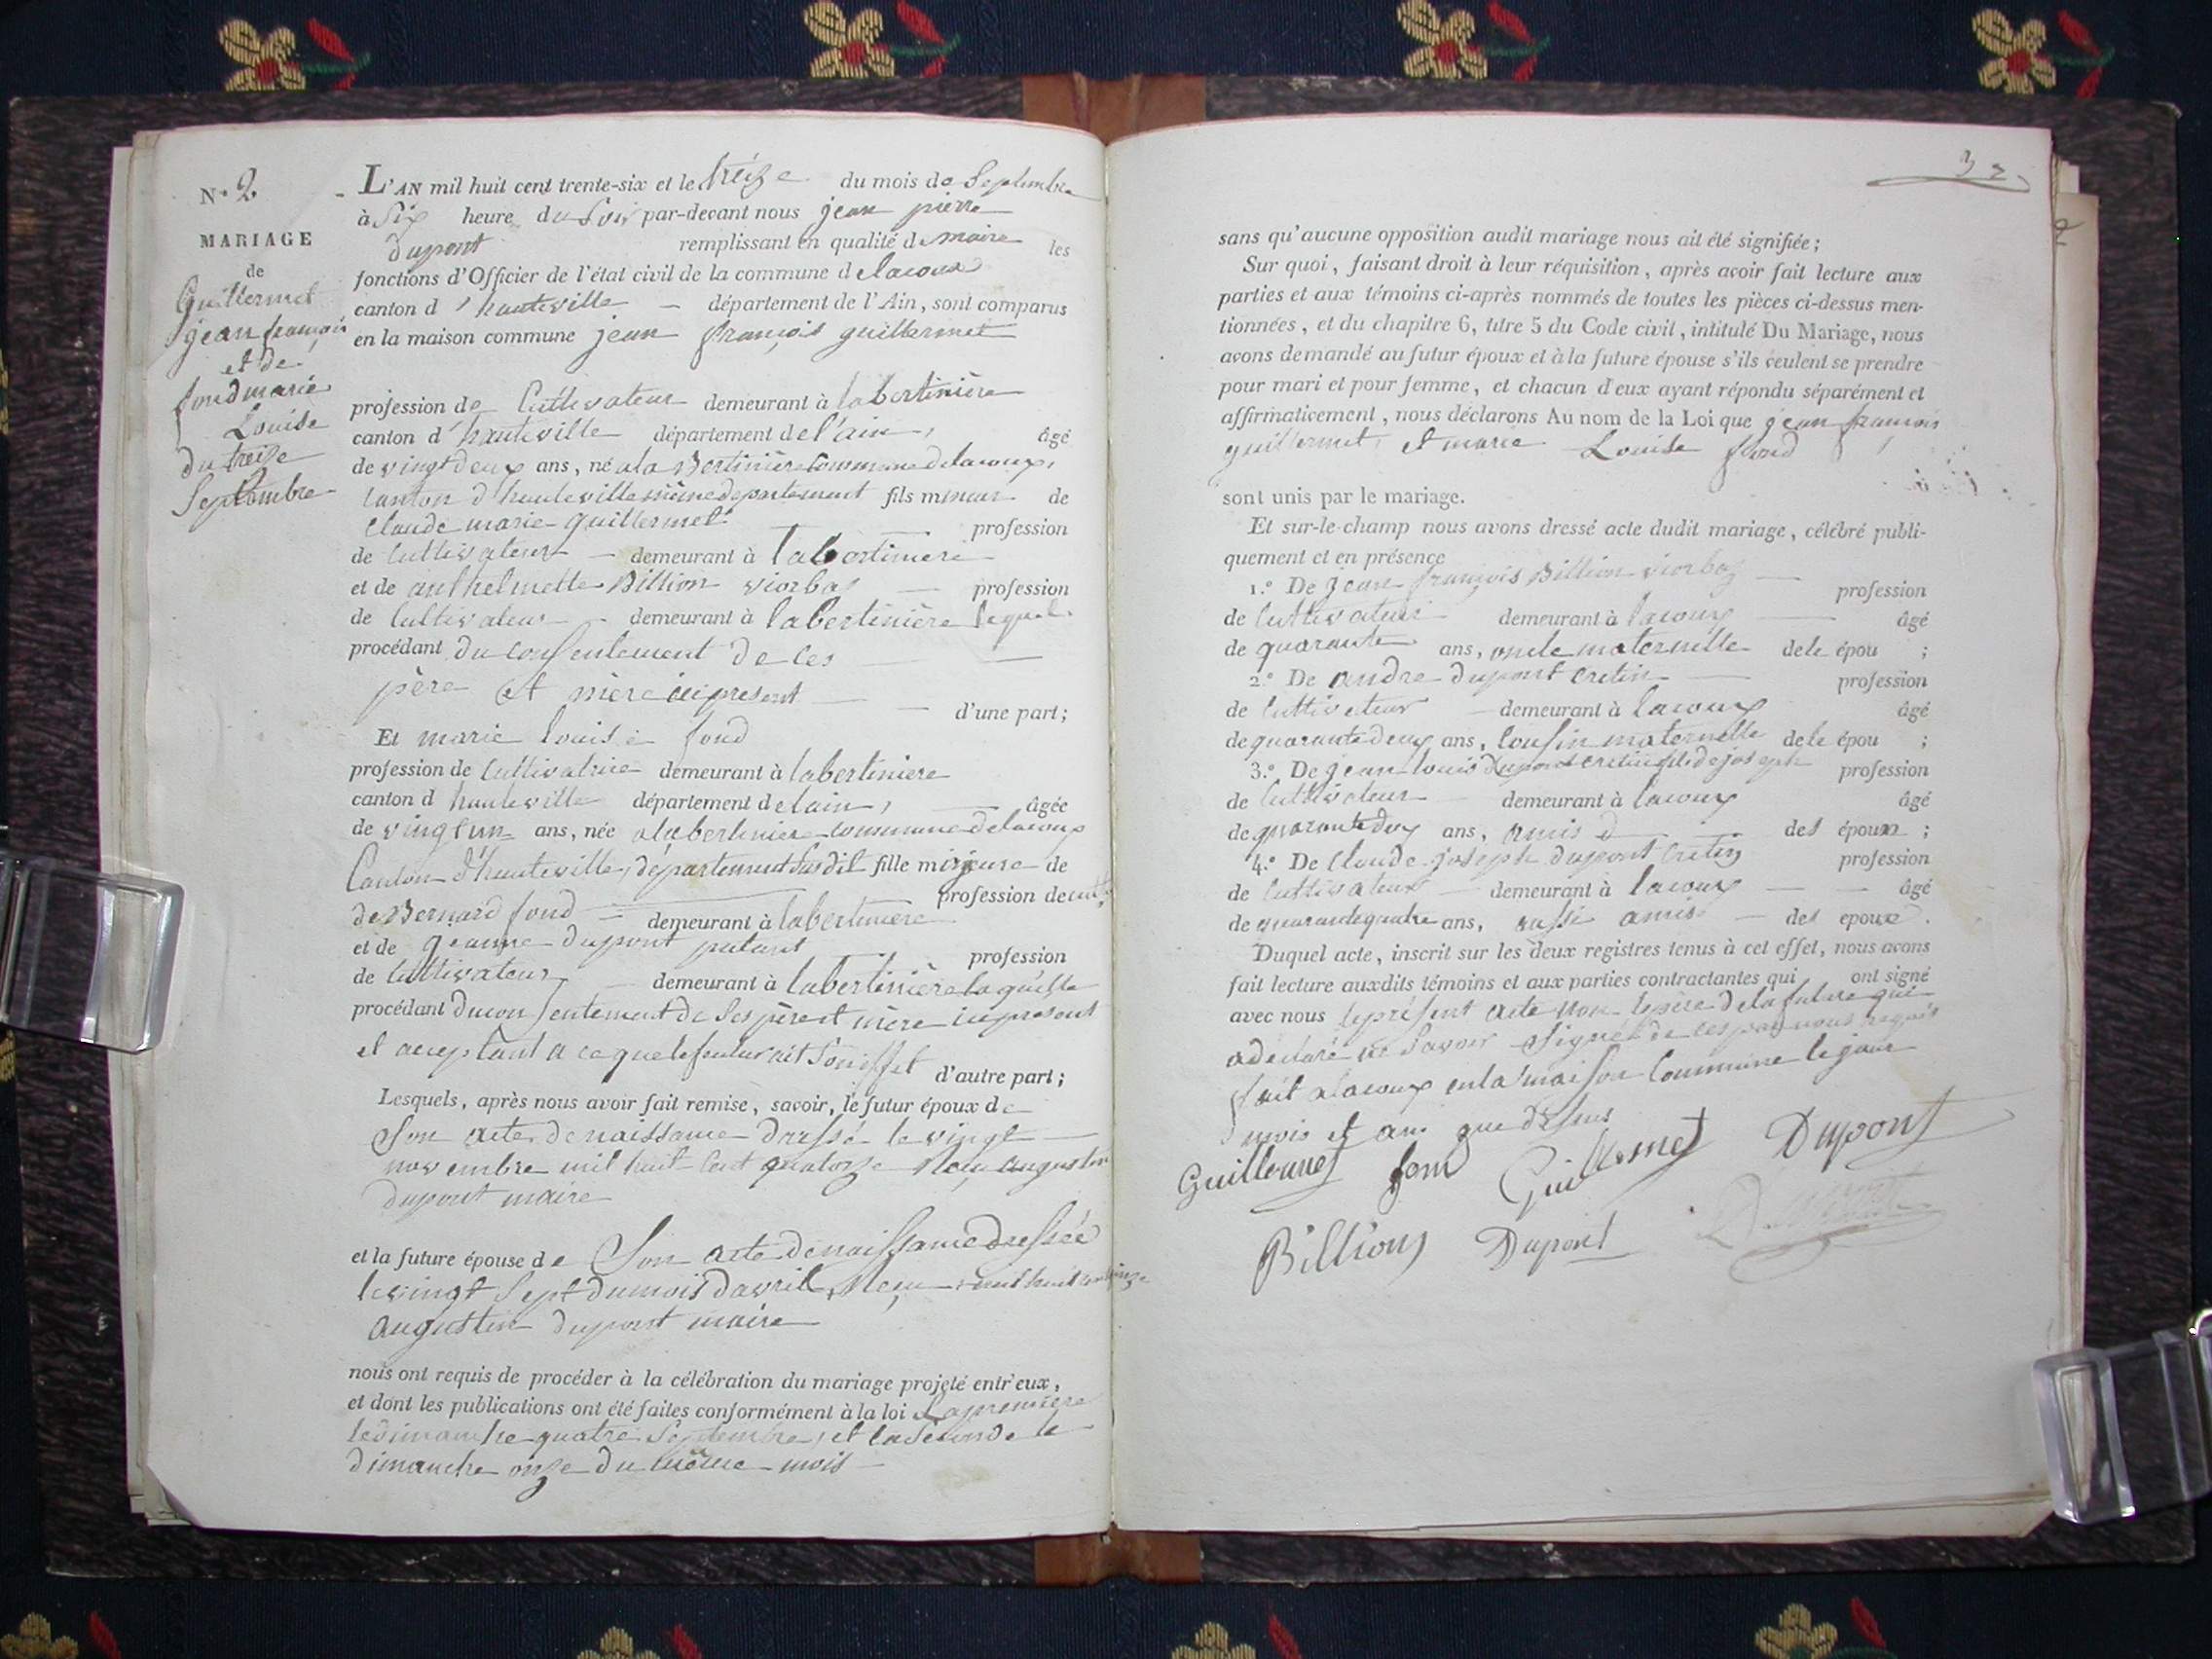 N.o 2
MARIAGE
de
Guillermet
jean françois
et de
fond marie
Louise
du treize
Septembre
L'AN mil huit cent trente-six et le treize du mois de Septembre
à Six heure du Soir par-devant nous jean pierre
dupont remplissant en qualité de maire les
fonctions d'Officier de l'état civil de la commune de lacoux
canton d'hauteville département de l'Ain, sont comparus
en la maison commune jean françois guillermet
profession de Cultivateur demeurant à labertinière
canton d'hauteville département de l'ain, âgé
de vingt deux ans, né a la Bertinière commune de lacoux,
canton d'hauteville même departement fils mineur de
claude marie guillermet profession
de Cultivateur demeurant à labertiniere
et de anthelmette Billion viorbas profession
de Cultivateur demeurant à labertinière lequel
procédant du consentement de ces
père et mère ici present
d'une part;
Et marie louise fond
profession de Cultivatrice demeurant à labertiniere
canton d hauteville département de lain, âgée
de vingt un ans, née a labertiniere commune de lacoux
Canton d'hauteville, département susdit fille majeure de
de Bernard fond profession de cult.
demeurant à labertiniere
et de jeanne dupont putant profession
de Cultivateur demeurant à labertinière laquelle
procédant du consentement de ses père et mère ici present
et acceptant a ce que le futur ait son effet d'autre part;
Lesquels, après nous avoir fait remise, savoir, le futur époux de
Son acte de naissance dressé le vingt
novembre mil huit cent quatorze Reçu augustin
dupont maire
et la future épouse de Son acte de naissance dressée
le vingt Sept du mois davril mil huit cent quinze Reçu
augustin dupont maire
nous ont requis de procéder à la célébration du mariage projeté entr'eux,
et dont les publications ont été faites conformément à la loi La premiere
le dimanche quatre Septembre, et la Seconde le
dimanche onze du même mois
sans qu'aucune opposition audit mariage nous ait été signifiée;
Sur quoi, faisant droit à leur réquisition, après avoir fait lecture aux
parties et aux témoins ci-après nommés de toutes les pièces ci-dessus men-
tionnées, et du chapitre 6, titre 5 du Code civil, intitulé Du Mariage, nous
avons demandé au futur époux et à la future épouse s'ils veulent se prendre
pour mari et pour femme, et chacun d'eux ayant répondu séparément et
affirmativement, nous déclarons Au nom de la Loi que jean françois
guillermet, et marie Louise fond
sont unis par le mariage.
Et sur-le-champ nous avons dressé acte dudit mariage, célébré publi-
quement et en présence
1.o De jean françois Billion viorbas profession
de Cultivateur demeurant à lacoux âgé
de quarante ans, oncle maternelle de le épou ;
2.o De andre dupont cretin profession
de Cultivateur demeurant à lacoux âgé
de quarante deux ans, Cousin maternelle de le épou ;
3.o De jean louis dupont cretin fils de joseph profession
de Cultivateur demeurant à lacoux âgé
de quarante deux ans, amis d des époux ;
4.o De Claude joseph dupont Cretin profession
de Cultivateur demeurant à lacoux âgé
de quarante quatre ans, aussi amis des epoux.
Duquel acte, inscrit sur les deux registres tenus à cet effet, nous avons
fait lecture auxdits témoins et aux parties contractantes qui ont signé
avec nous le présent acte non le père de la future qui
a déclaré ne Savoir Signer de ces par nous requis
fait a lacoux en la maison Commune le jour
mois et an que dessus
Guillermet fond Guillermet Dupont
Billion Dupont